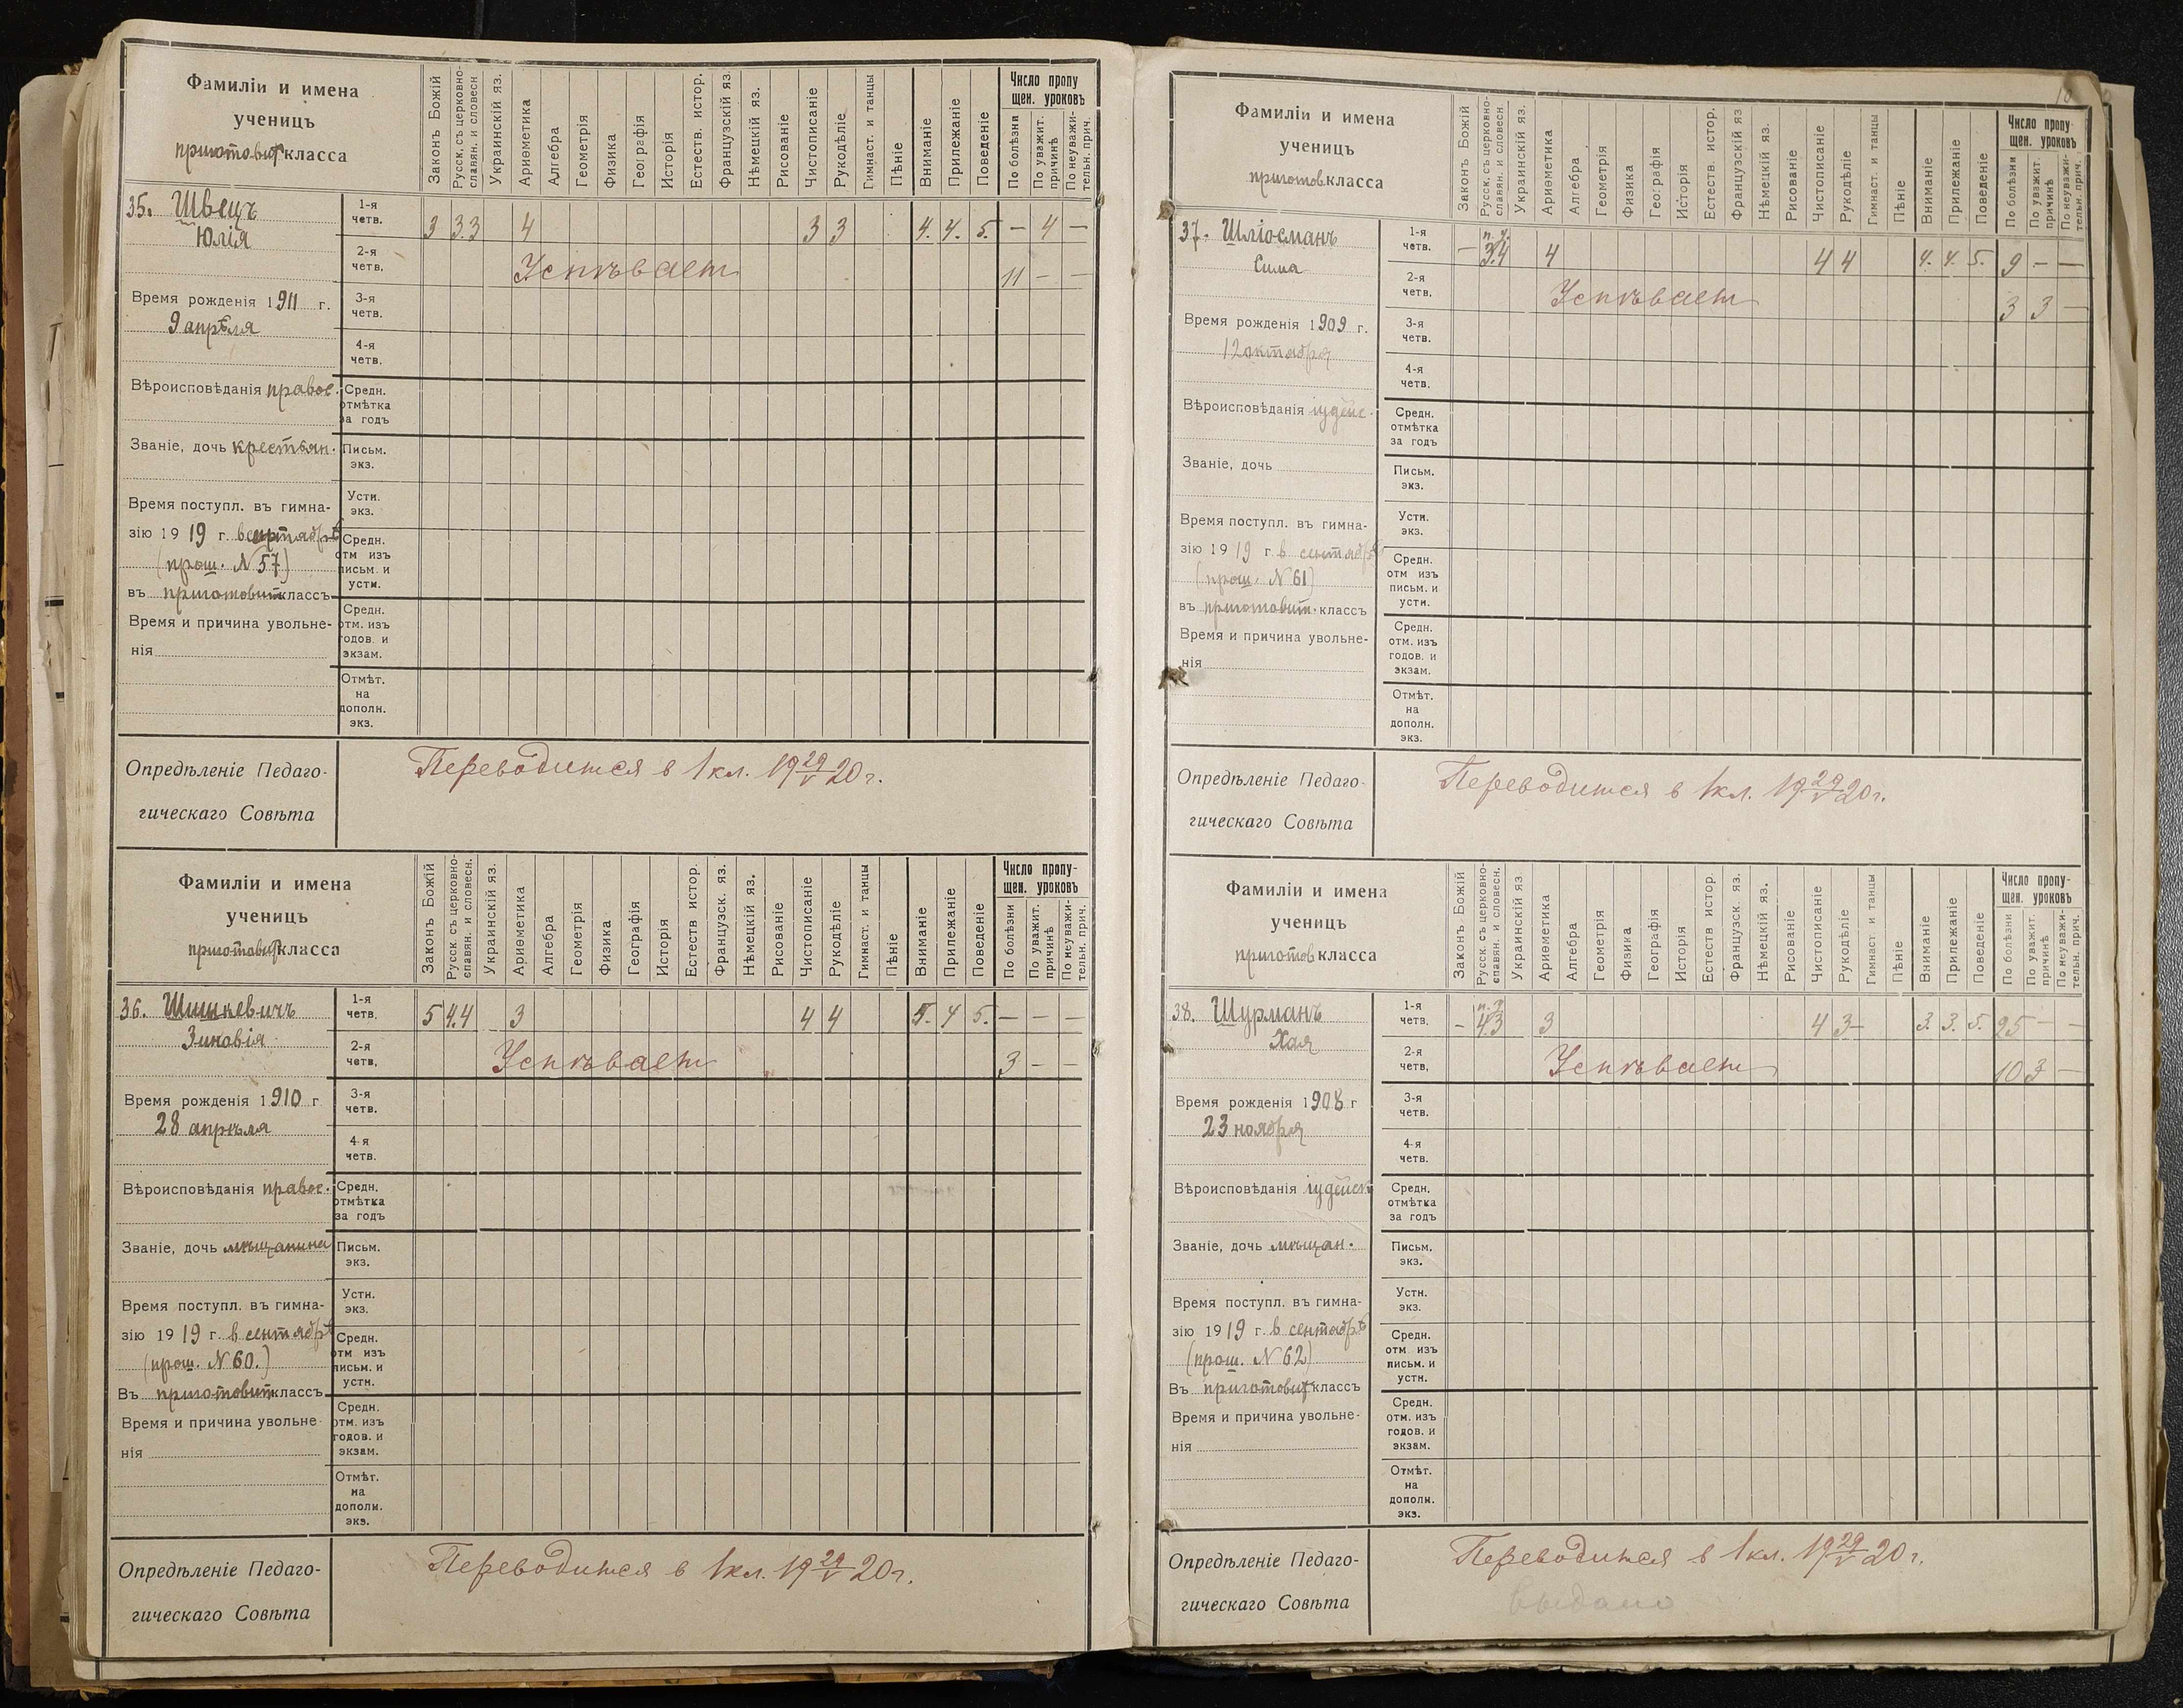 Фамиліи и имена
ученицъ
приготовит класса
Законъ Божій
Русск. съ церковно-
славян. и словесн
Украинскій яз.
Ариѳметика
Алгебра
Геометрія
Физика
Географія
Исторія
Естеств. истор.
Французскій яз.
Нѣмецкій яз.
Рисованіе
Чистописаніе
Рукодѣліе
Гимнаст. и танцы
Пѣніе
Вниманіе
Прилежаніе
Поведеніе
Число пропу
щен. уроковъ
По болѣзни
По уважит.
причинѣ
По неуважи-
тельн. прич.
35. Швецъ
Юлія
1-я
четв.
3 3.3 4 3 3 4. 4. 5. – 4 –
2-я
четв.
Успѣвает 11 – –
Время рожденія 1911 г.
9 апрѣля
3-я
четв.
4-я
четв.
Вѣроисповѣданія правос.
Средн.
отмѣтка
за годъ
Званіе, дочь крестьян.
Письм.
экз.
Время поступл. въ гимна-
зію 1919 г. в сентябрѣ
(прош. N 57)
въ приготовит классъ
Устн.
экз.
Средн.
отм изъ
письм. и
устн.
Время и причина увольне-
нія
Средн.
отм. изъ
годов. и
экзам.
Отмѣт.
на
дополн.
экз.
Опредѣленіе Педаго-
гическаго Совѣта
Переводится в 1 кл. 19 29/V 20 г.
Фамиліи и имена
ученицъ
приготовит класса
Законъ Божій
Русск. съ церковно-
славян. и словесн.
Украинскій яз.
Ариѳметика
Алгебра
Геометрія
Физика
Географія
Исторія
Естеств истор.
Французск. яз.
Нѣмецкій яз.
Рисованіе
Чистописаніе
Рукодѣліе
Гимнаст. и танцы
Пѣніе
Вниманіе
Прилежаніе
Поведеніе
Число пропу-
щен. уроковъ
По болѣзни
По уважит.
причинѣ
По неуважи-
тельн. прич.
36. Шишкевичъ
Зиновія
1-я
четв.
5 4.4 3 4 4 4 5. – – –
2-я
четв.
Успѣвает 3 – –
Время рожденія 1910 г
28 апрѣля
3-я
четв.
4-я
четв.
Вѣроисповѣданія правос.
Средн.
отмѣтка
за годъ
Званіе, дочь мѣщанина
Письм.
экз.
Время поступл. въ гимна-
зію 1919 г. в сентябрѣ
(прош. N 60.)
Въ приготовит классъ
Устн.
экз.
Средн.
отм изъ
письм. и
устн.
Время и причина увольне
нія
Средн.
отм. изъ
годов. и
экзам.
Отмѣт.
на
дополн.
экз.
Опредѣленіе Педаго-
гическаго Совѣта
Переводится в 1 кл. 19 29/V 20 г.
10
Фамиліи и имена
ученицъ
приготов класса
Законъ Божій
Русск. съ церковно-
славян. и словесн
Украинскій яз.
Ариѳметика
Алгебра
Геометрія
Физика
Географія
Исторія
Естеств. истор.
Французскій яз
Нѣмецкій яз.
Рисованіе
Чистописаніе
Рукодѣліе
Гимнаст. и танцы
Пѣніе
Вниманіе
Прилежаніе
Поведеніе
Число пропу
щен. уроковъ
По болѣзни
По уважит.
причинѣ
По неуважи-
тельн. прич.
37. Шліосманъ
Сима
1-я
четв.
– 3.4 4 4 4 4. 4. 5. 9 – –
2-я
четв.
Успѣвает 3 3 –
Время рожденія 1909 г.
12 октября
3-я
четв.
4-я
четв.
Вѣроисповѣданія іудейс.
Средн.
отмѣтка
за годъ
Званіе, дочь
Письм.
экз.
Время поступл. въ гимна-
зію 1919 г. в сентябрѣ
(прош. N 61)
въ приготовит. классъ
Устн.
экз.
Средн.
отм изъ
письм. и
устн.
Время и причина увольне-
нія
Средн.
отм. изъ
годов. и
экзам.
Отмѣт.
на
дополн.
экз.
Опредѣленіе Педаго-
гическаго Совѣта
Переводится в 1 кл. 19 29/V 20 г.
Фамиліи и имена
ученицъ
приготов класса
Законъ Божій
Русск. съ церковно-
славян. и словесн.
Украинскій яз
Ариѳметика
Алгебра
Геометрія
Физика
Географія
Исторія
Естеств истор
Французск яз.
Нѣмецкій яз.
Рисованіе
Чистописаніе
Рукодѣліе
Гимнаст и танцы
Пѣніе
Вниманіе
Прилежаніе
Поведеніе
Число пропу-
щен. уроковъ
По болѣзни
По уважит.
причинѣ
По неуважи-
тельн. прич.
38. Шурманъ
Хая
1-я
четв.
– 4.3 3 4 3– 3. 3. 5. 25 – –
2-я
четв.
Успѣвает 10 3 –
Время рожденія 1908 г
23 ноября
3-я
четв.
4-я
четв.
Вѣроисповѣданія іудейск
Средн.
отмѣтка
за годъ
Званіе, дочь мѣщан.
Письм.
экз.
Время поступл. въ гимна-
зію 1919 г. в сентябрѣ
(прош. N 62)
Въ приготовит классъ
Устн.
экз.
Средн.
отм изъ
письм. и
устн.
Время и причина увольне-
нія
Средн.
отм. изъ
годов. и
экзам.
Отмѣт.
на
дополн.
экз.
Опредѣленіе Педаго-
гическаго Совѣта
Переводится в 1 кл. 19 29/V 20 г.
выдано